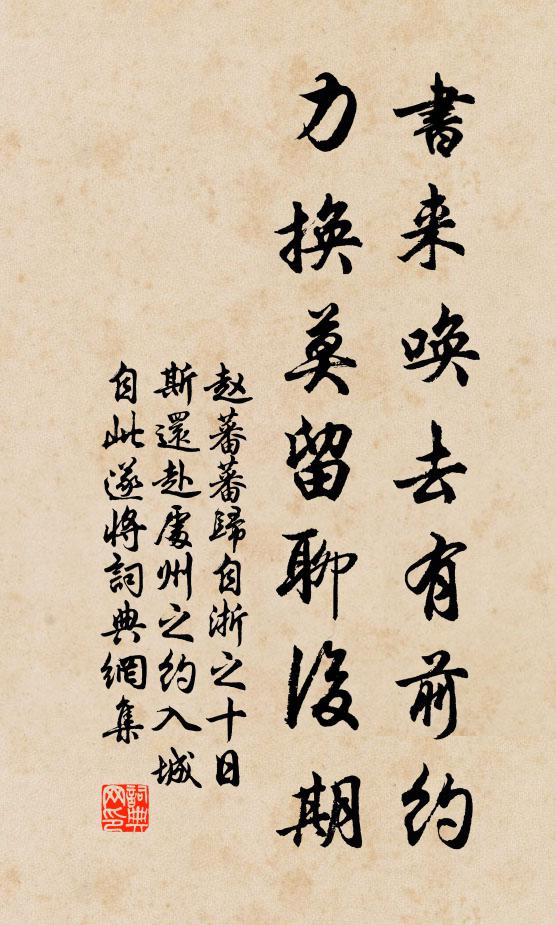 書来喚去有前約
力換莫留聊後期
赵蕃蕃歸自浙之十日
斯還赴處州之約入城
自此遂将詞典網集
詞典网印